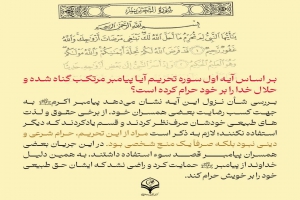 سُورَةُ التَّحْرِيمِ
بِسْمِ اللَّهِ الرَّحْمَنِ الرَّحِيمِ
يَا أَيُّهَا النَّبِيُّ لِمَ تُحَرِّمُ مَا أَحَلَّ اللَّهُ لَكَ تَبْتَغِي مَرْضَاتَ أَزْوَاجِكَ وَاللَّهُ
بر اساس آیه اول سوره تحریم آیا پیامبر مرتکب گناه شده و
حلال خدا را بر خود حرام کرده است؟
بررسی شان نزول این آیه نشان می‌دهد پیامبر اکرم ﷺ به
جهت کسب رضایت بعضی همسران خود، از برخی حقوق و لذت
های طبیعی خودشان صرف‌نظر کردند و قسم یادکردند که دیگر
استفاده نکنند؛ لازم به ذکر است مراد از این تحریم، حرام شرعی و
دینی نبود بلکه صرفا یک منع شخصی بود. در این جریان بعضی
همسران پیامبر ﷺ قصد سوء استفاده داشتند، به همین دلیل
خداوند از پیامبر ﷺ حمایت کرد و راضی نشد که ایشان حق طبیعی
خود را بر خویش حرام کند.